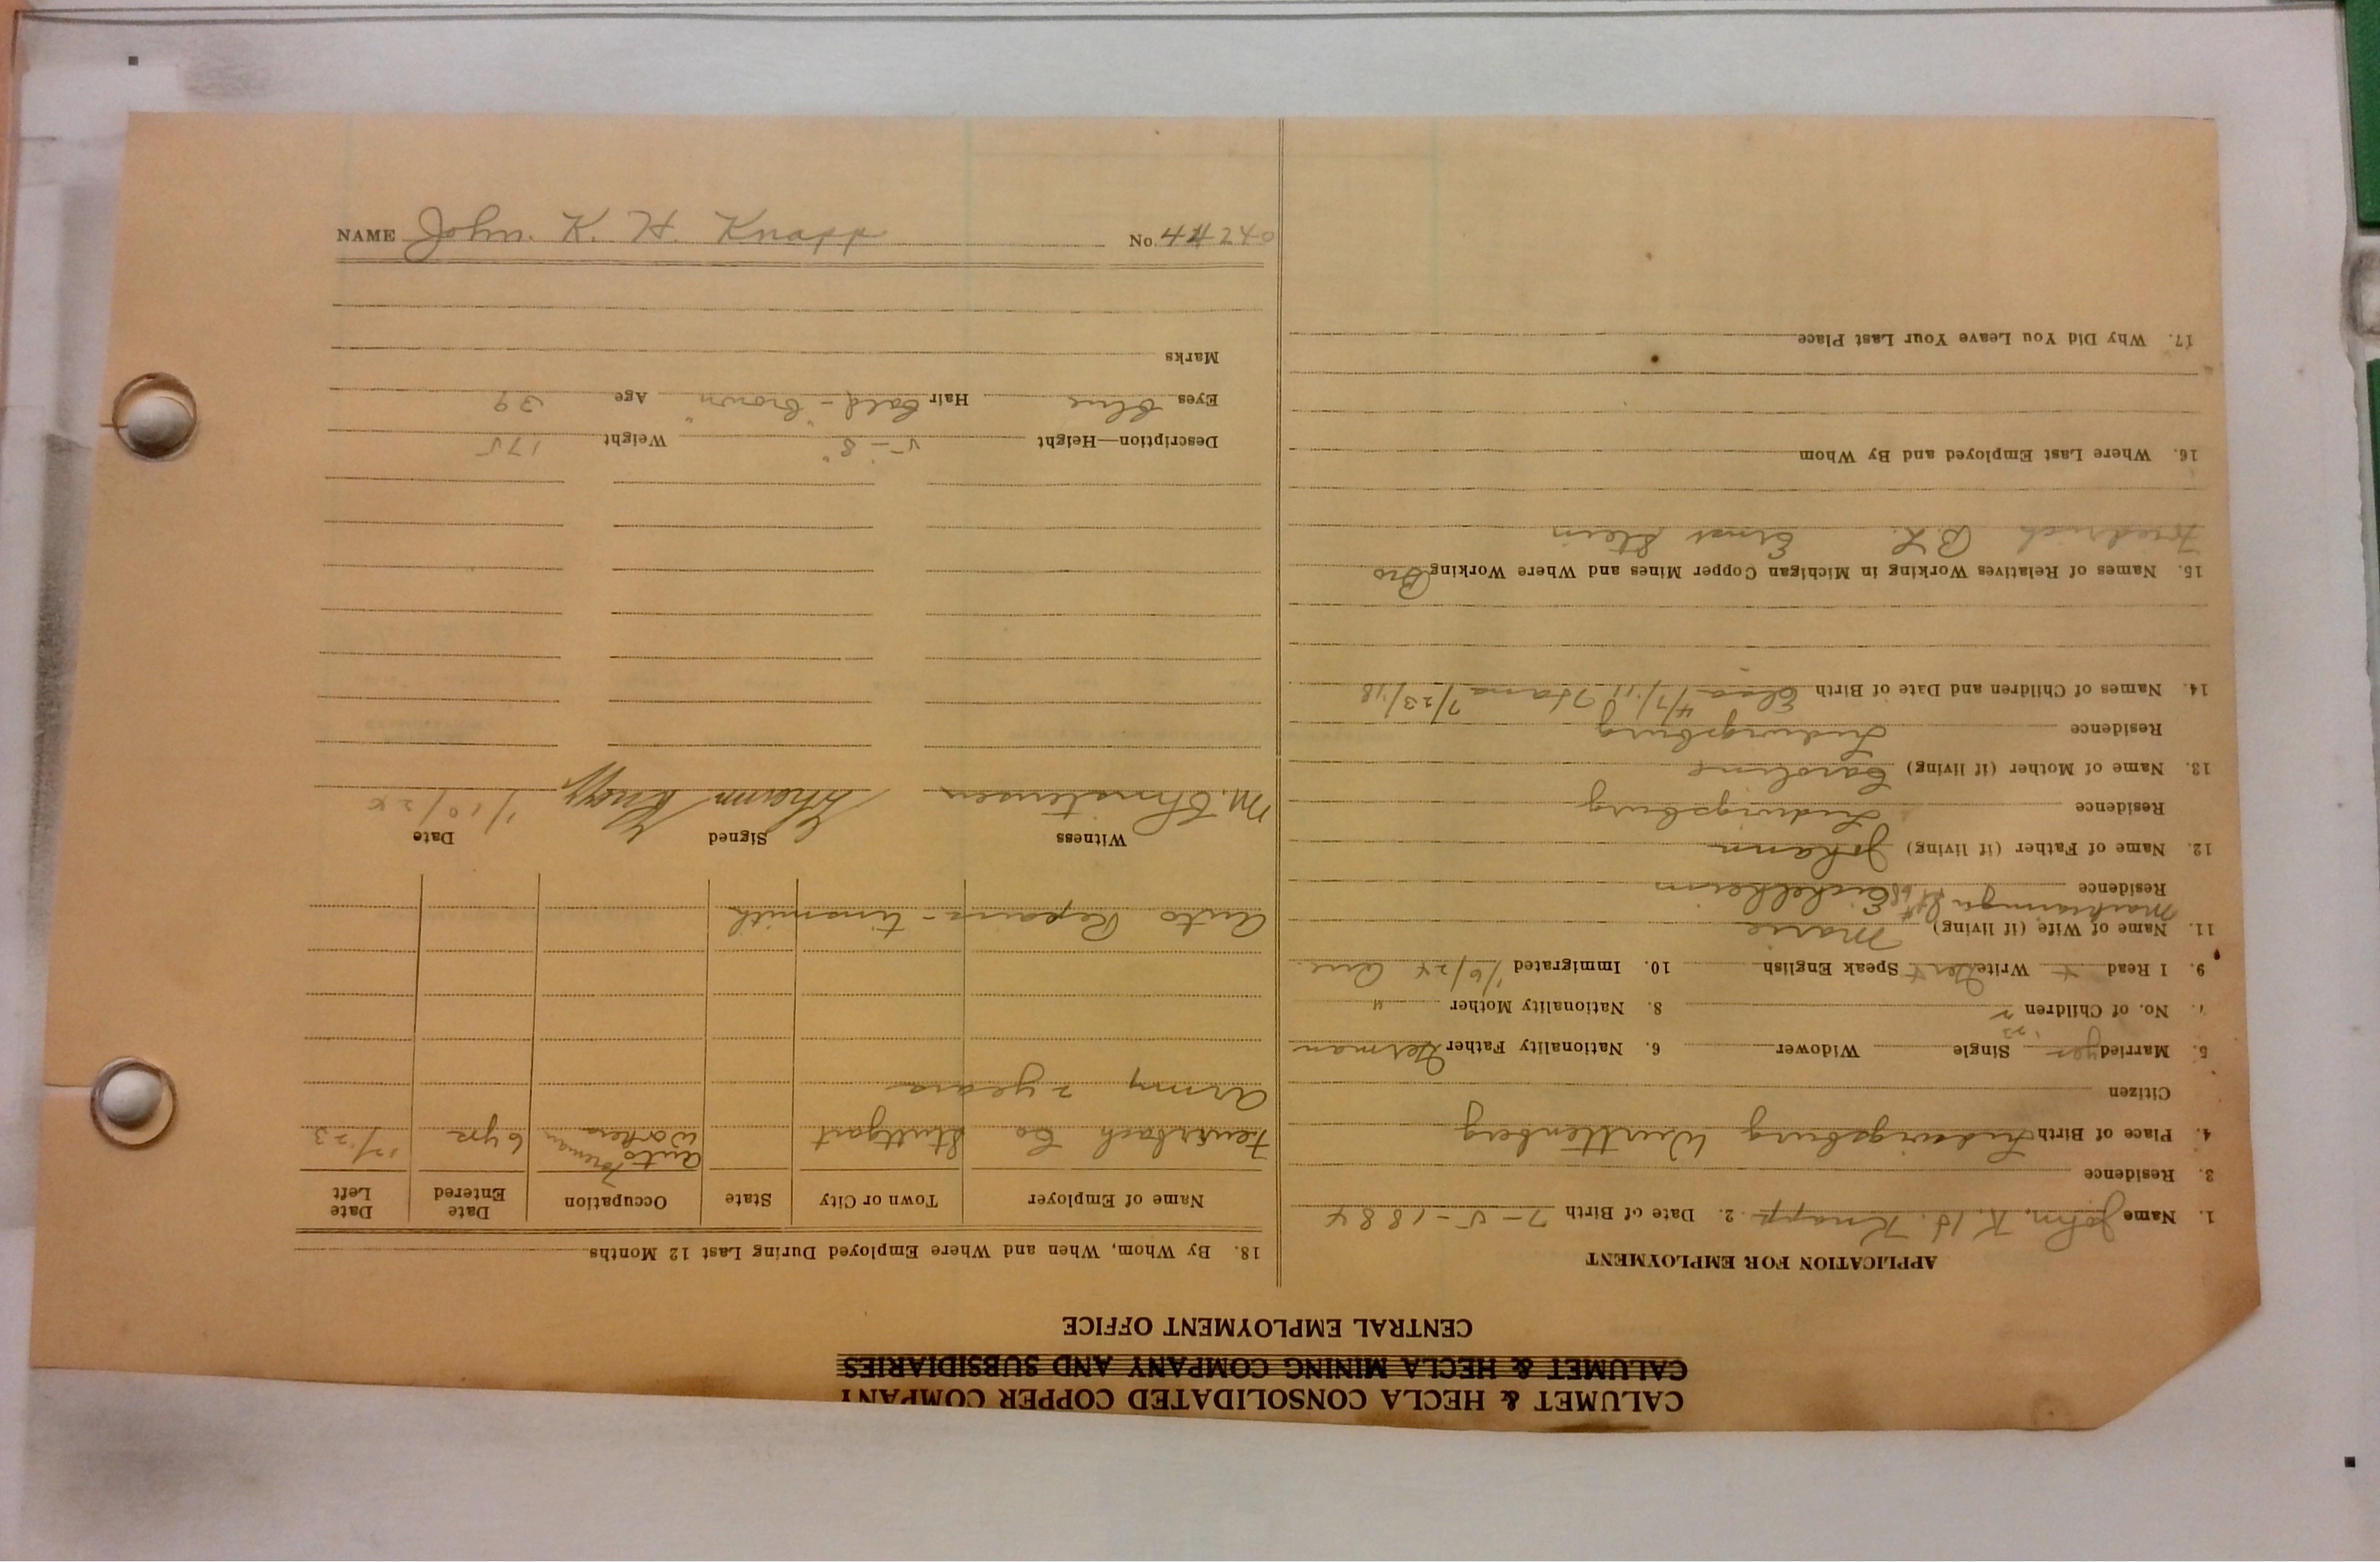 CALUMET & HECLA CONSOLIDATED COPPER COMPANY
CALUMET & HECLA MINING COMPANY AND SUBSIDIARIES
CENTRAL EMPLOYMENT OFFICE
APPLICATION FOR EMPLOYMENT
1. Name John. K. H. Knapp 2. Date of Birth 7-5-1884
3. Residence
4. Place of Birth Ludwigsburg Wurttenberg
Citizen
5. Married yes Single Widower 6. Nationality Father German
7. No. of Children 2 8. Nationality Mother "
9. I Read + Write Ger + Speak English 10. Immigrated 1/6/24
11. Name of Wife (if living) Marie
Residence
12. Name of Father (if living) Johann
Residence Ludwigsburg
13. Name of Mother (if living) Caroline
Residence Ludwigsburg
14. Names of Children and Date of Birth Elsa 4/7/11 7/23/18
15. Names of Relatives Working in Michigan Copper Mines and Where Working Bro
Friedrich B.L. Ernst Stein
16. Where Last Employed and By Whom
17. Why Did You Leave Your Last Place
18. By Whom, When and Where Employed During Last 12 Months
Name of Employer Town or City State Occupation Date Entered Date Left
Feuerbach Co Stuttgart Auto Workers Foreman 6 yrs 12/23
Army 2 years
Auto Repairs - tinsmith
Witness Signed Date
M. Christensen Johann Knapp 1/10/24
Description—Height 5-8" Weight 175
Eyes blue Hair bald - "brown" Age 39
Marks
NAME John. K. H. Knapp No. 44240